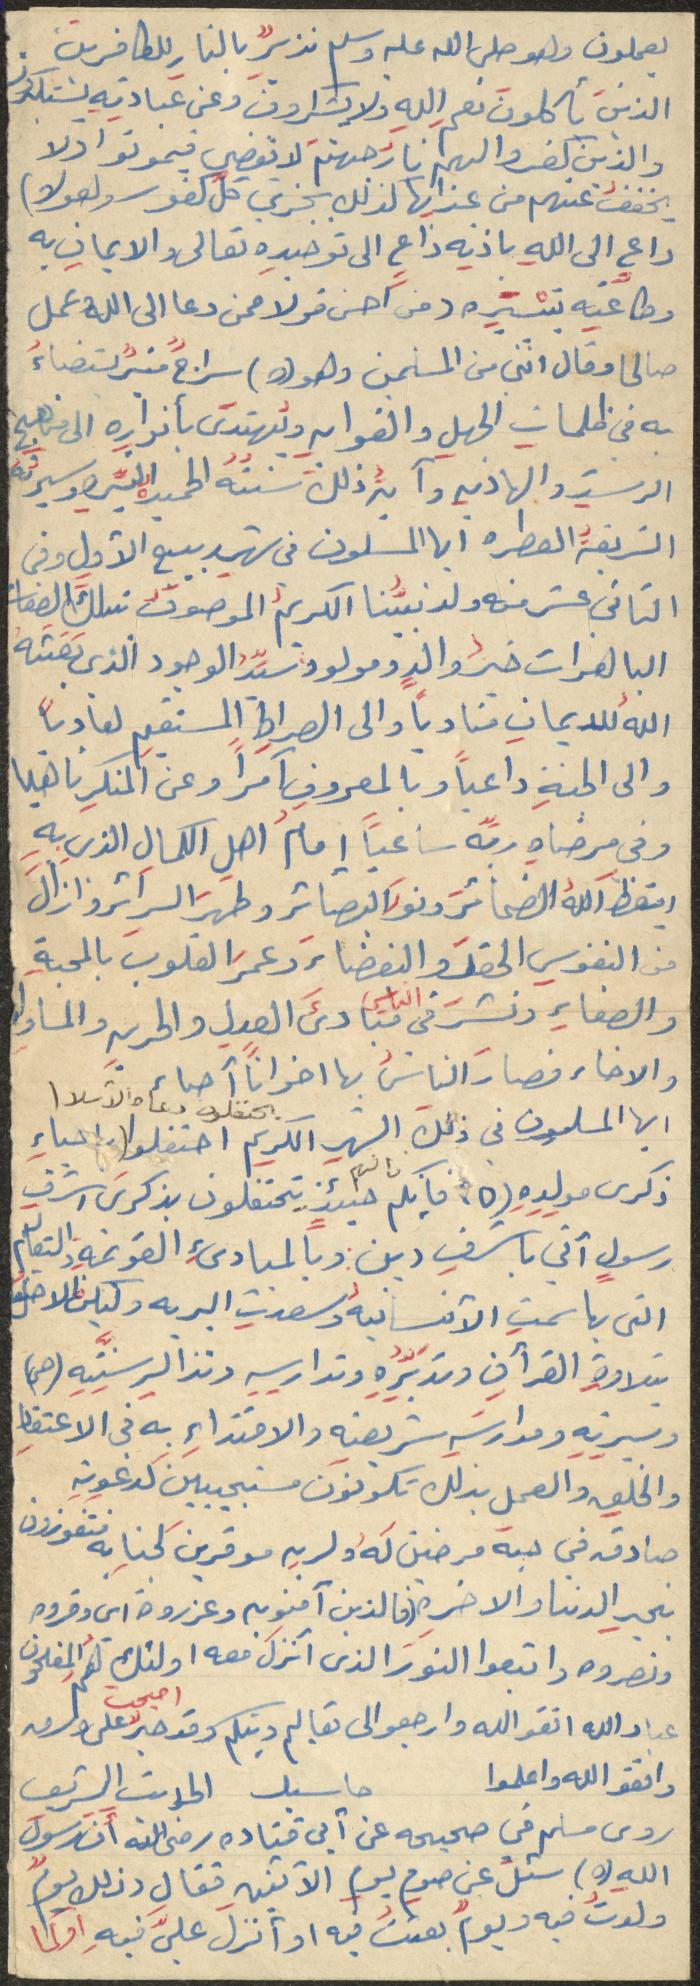 يعملون وهو صلى الله عليه وسلم نذيرٌ بالنارِ للكافرين
الذين يأكلون نعم اللهِ ولا يشكرون وعن عبادتِه يستكبرون
والذين كفروا لهم نارُ جهنم لا يقضى فيموتوا ولا
يخففُ عنهم من عذابها كذلك نجزي كلَّ كفور وهو (ص)
داعٍ الى اللهِ باذنِه داعٍ الى توحيدِه تعالى والايمانِ به
وطاعتِه بتيسيره ومن احسن قولا ممن دعا الى الله وعمل
صالحا وقال انني من المسلمين وهو (ص) سراجٌ منيرٌ يستضاءُ
به في ظلماتِ الجهلِ والغوايه ويُهتدى بأنوارِه الى مناهج
الرشدِ والهدايه وآيةُ ذلك سنتُه الحميده وسيرتُه
الشريفةُ العطره ايها المسلمون في شهرِ ربيع الأولِ وفي
الثاني عشر منه ولد نبيُّنا الكريمُ الموصوفُ بتلك الصفات
الباهرات خيرُ والدٍ ومولود وسيّدُ الوجود الذي بعثه
اللهُ للايمانِ مناديا والى الصراطِ المستقيمِ هادياً
والى الجنةِ داعياً وبالمعروفِ آمراً وعن المنكرِ ناهيا
وفي مرضاةِ ربِّه ساعياً إمامُ اهلِ الكمالِ الذي بِه
ايقظَ اللهُ الضمائرَ ونورَ البصائر وطهرَ السرائر وأزالَ
من النفوسِ الحقدَ والبغضاءَ وعمرَ القلوبَ بالمحبةِ
والصفاءِ ونشرَ في الناس مبادئَ العدلِ والحريه والمساواه
والاخاء فصارَ الناسُ بها اخواناً أحباء
يحتفلون دعاة الاسلام
ايها المسلمون في ذلك الشهرِ الكريم احتفلوا باحياءِ
ذكرى مولدِه (ص) فانكم حينئذٍ تحتفلون بذكرى اشرفِ
رسولٍ أتى باشرفِ دينٍ وبالمبادئ القويمةِ والتعاليم
التي بها سمتِ الانسانيةُ وسعدتِ البريه وليكن الاحتفال
بتلاوةِ القرآنِ وتدبُّرِه وتدارسِه وتذاكرِ سنّتِه (ص)
وسيرتِه ومدارسةِ شريعتِه والاقتداءِ به في الاعتقادِ
والخلقِ والعملِ بذلك تكونون مستجيبين لدعوتِه
صادقين في حبه مرضين لهُ ولربه موقرين لجنابِه فتفوزون
بخيرِ الدنيا والاخرةِ (فالذين آمنوا به وعزروه اي وقروه
ونصروه واتبعوا النورَ الذي أُنزلَ معه اولئك هُم المفلحون
عباد الله اتقوا الله وارجعوا الى تعاليم دينكم
واتقوا الله واعلموا الحديث الشريف
روى مسلم في صحيحه عن أبي قتاده رضي الله عنه أن رسولَ
اللهِ (ص) سئلَ عن صومِ يومِ الاثنينِ فقال ذلك يومٌ
ولدتُ فيه ويومٌ بعثتُ فيه او أنزل عليَّ فيهِ